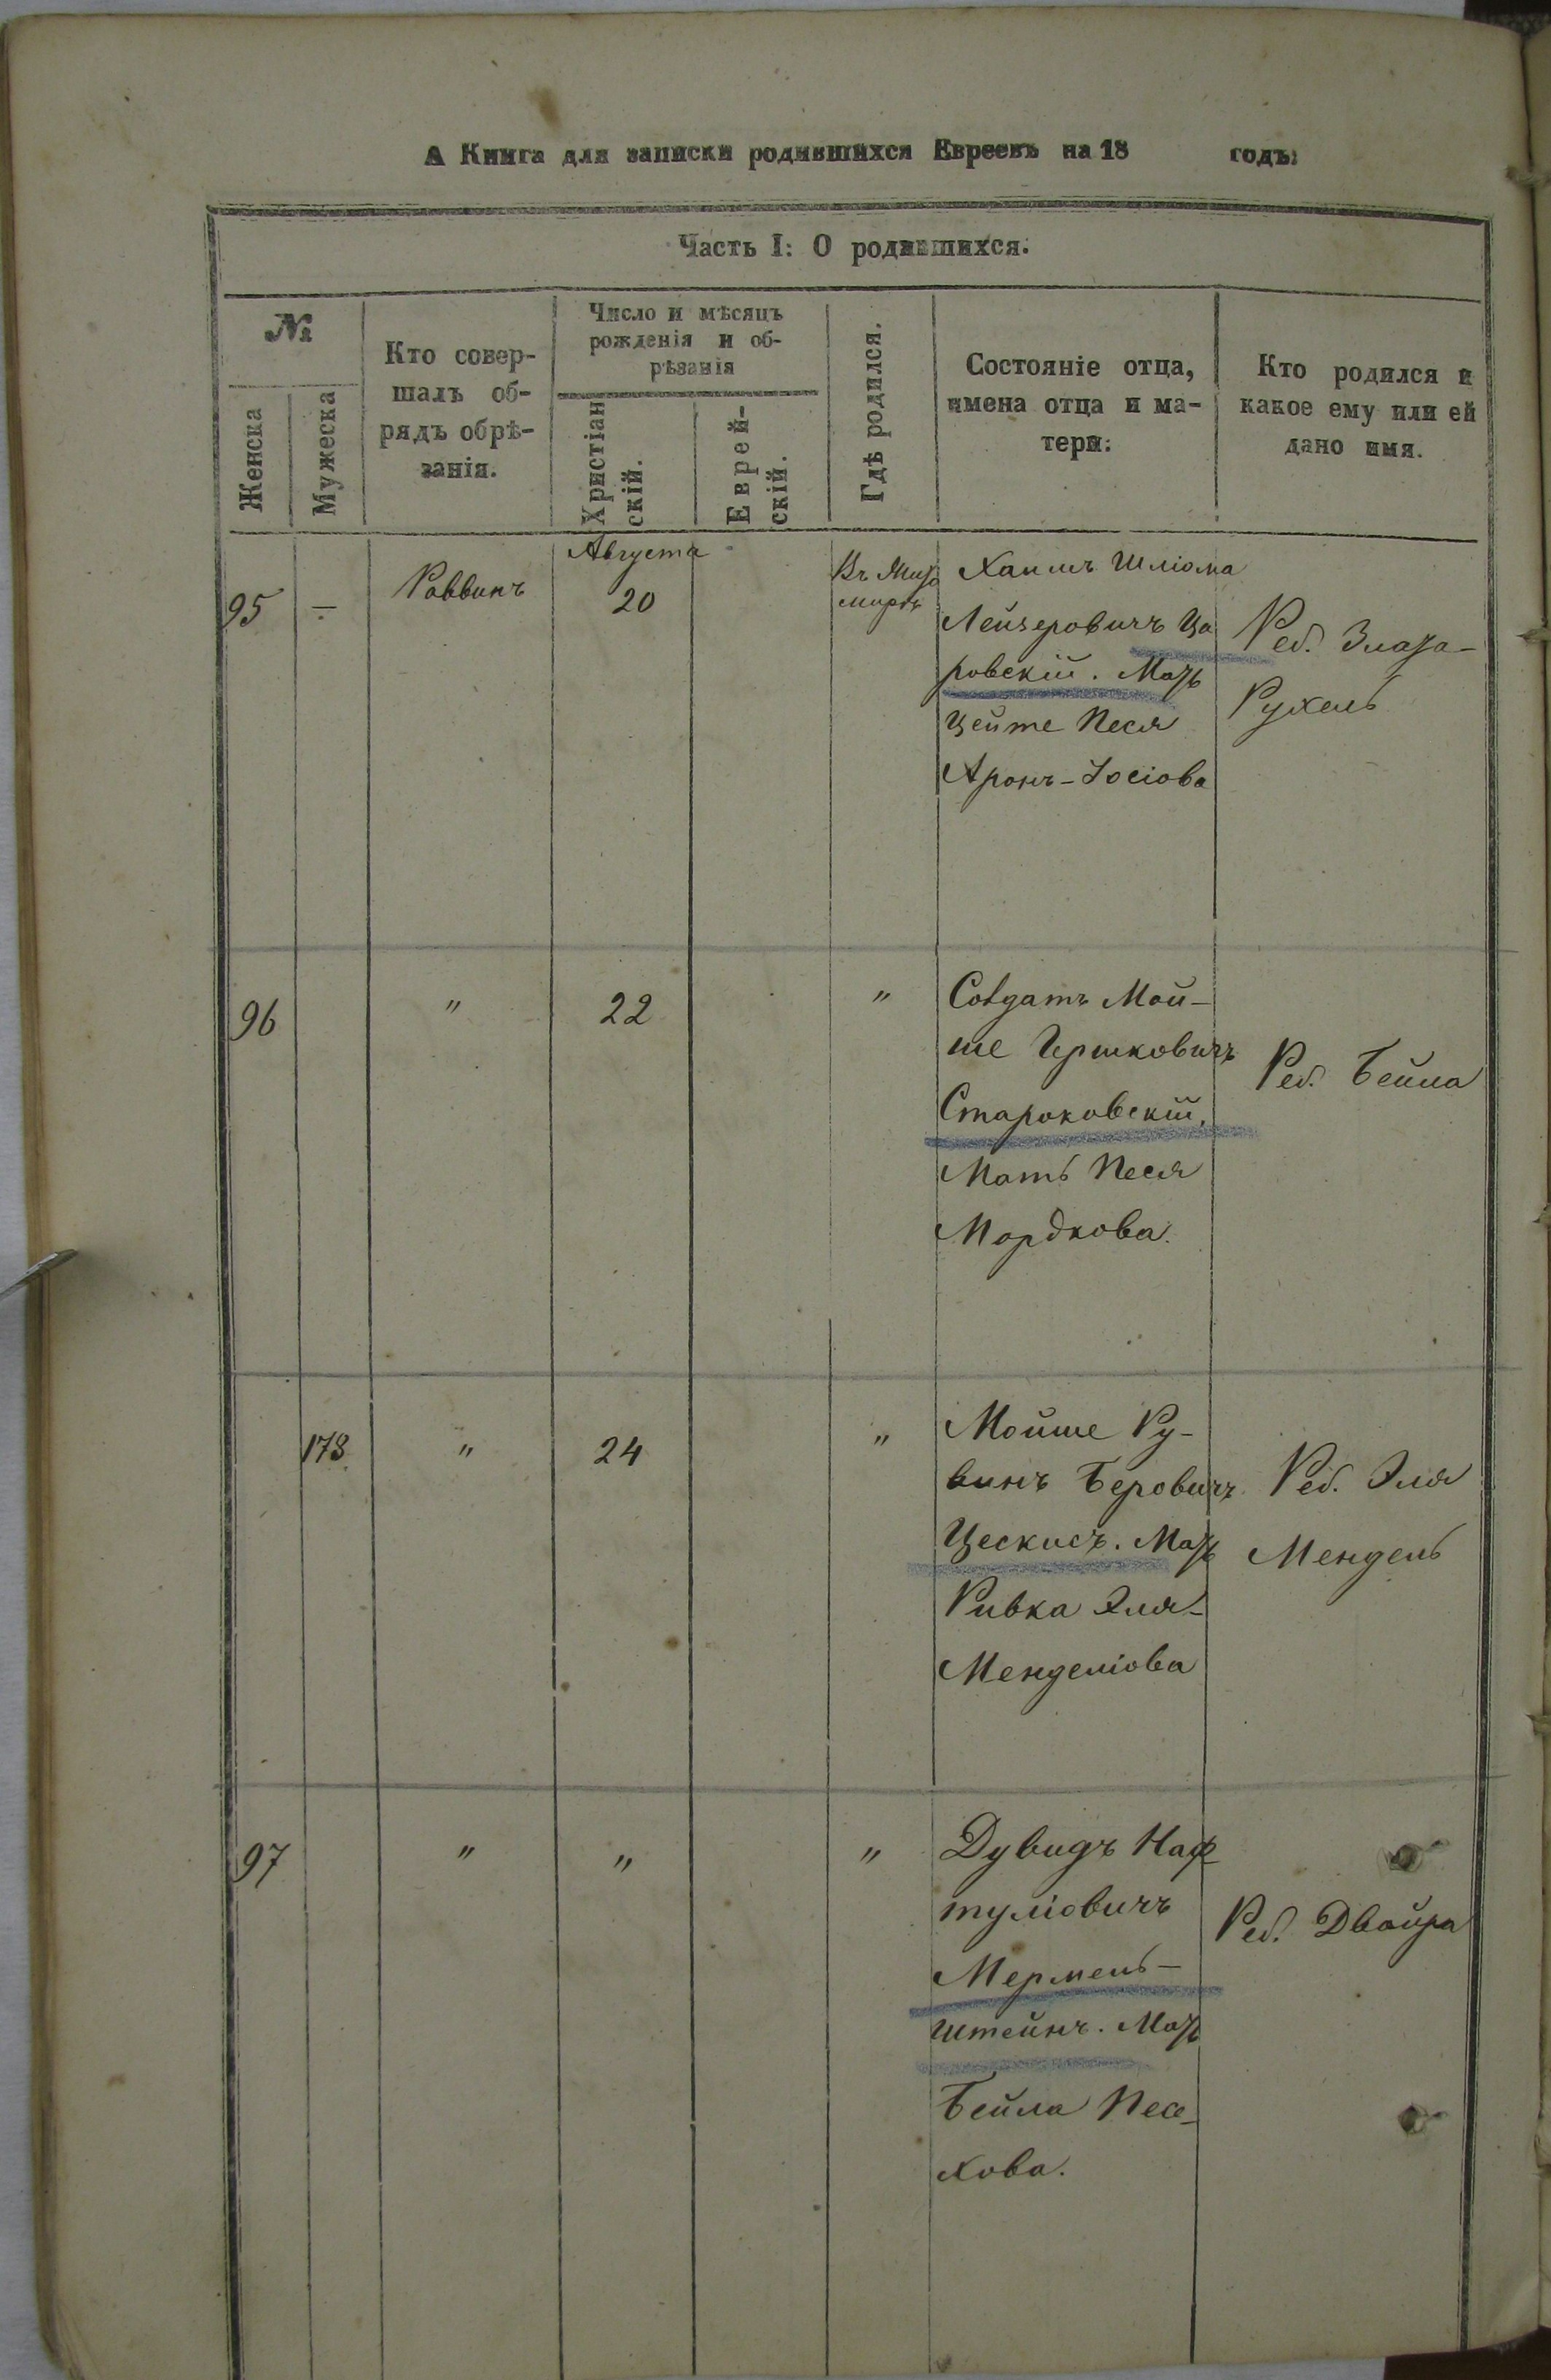 А Книга для записки родившихся Евреевъ на 18 годъ:
Часть I: О родившихся.
№
Женска
Мужеска
Кто совер-
шалъ об-
рядъ обрѣ-
занія.
Число и мѣсяцъ
рожденія и об-
рѣзанія
Христіан
скій.
Еврей-
скій.
Гдѣ родился.
Состояніе отца,
имена отца и ма-
тери:
Кто родился и
какое ему или ей
дано имя.
95
—
Раввинъ
Августа
20
Въ Жито
мирѣ
Хаимъ Шліома
Лейзеровичъ Ца
ровскій. Мать
Цейте Песя
Аронъ-Іосіова
Реб. Злата-
Рухель
96
"
22
"
Солдатъ Мой-
ше Гершковичъ
Староковскій.
Мать Песя
Мордкова.
Реб. Бейла
178
"
24
"
Мойше Ру-
винъ Беровичъ
Цескисъ. Мать
Ривка Эля-
Менделіова
Реб. Эля
Мендель
97
"
"
"
Дувидъ Наф-
туліовичъ
Мермель-
штейнъ. Мать
Бейла Песа-
хова.
Реб. Двойра